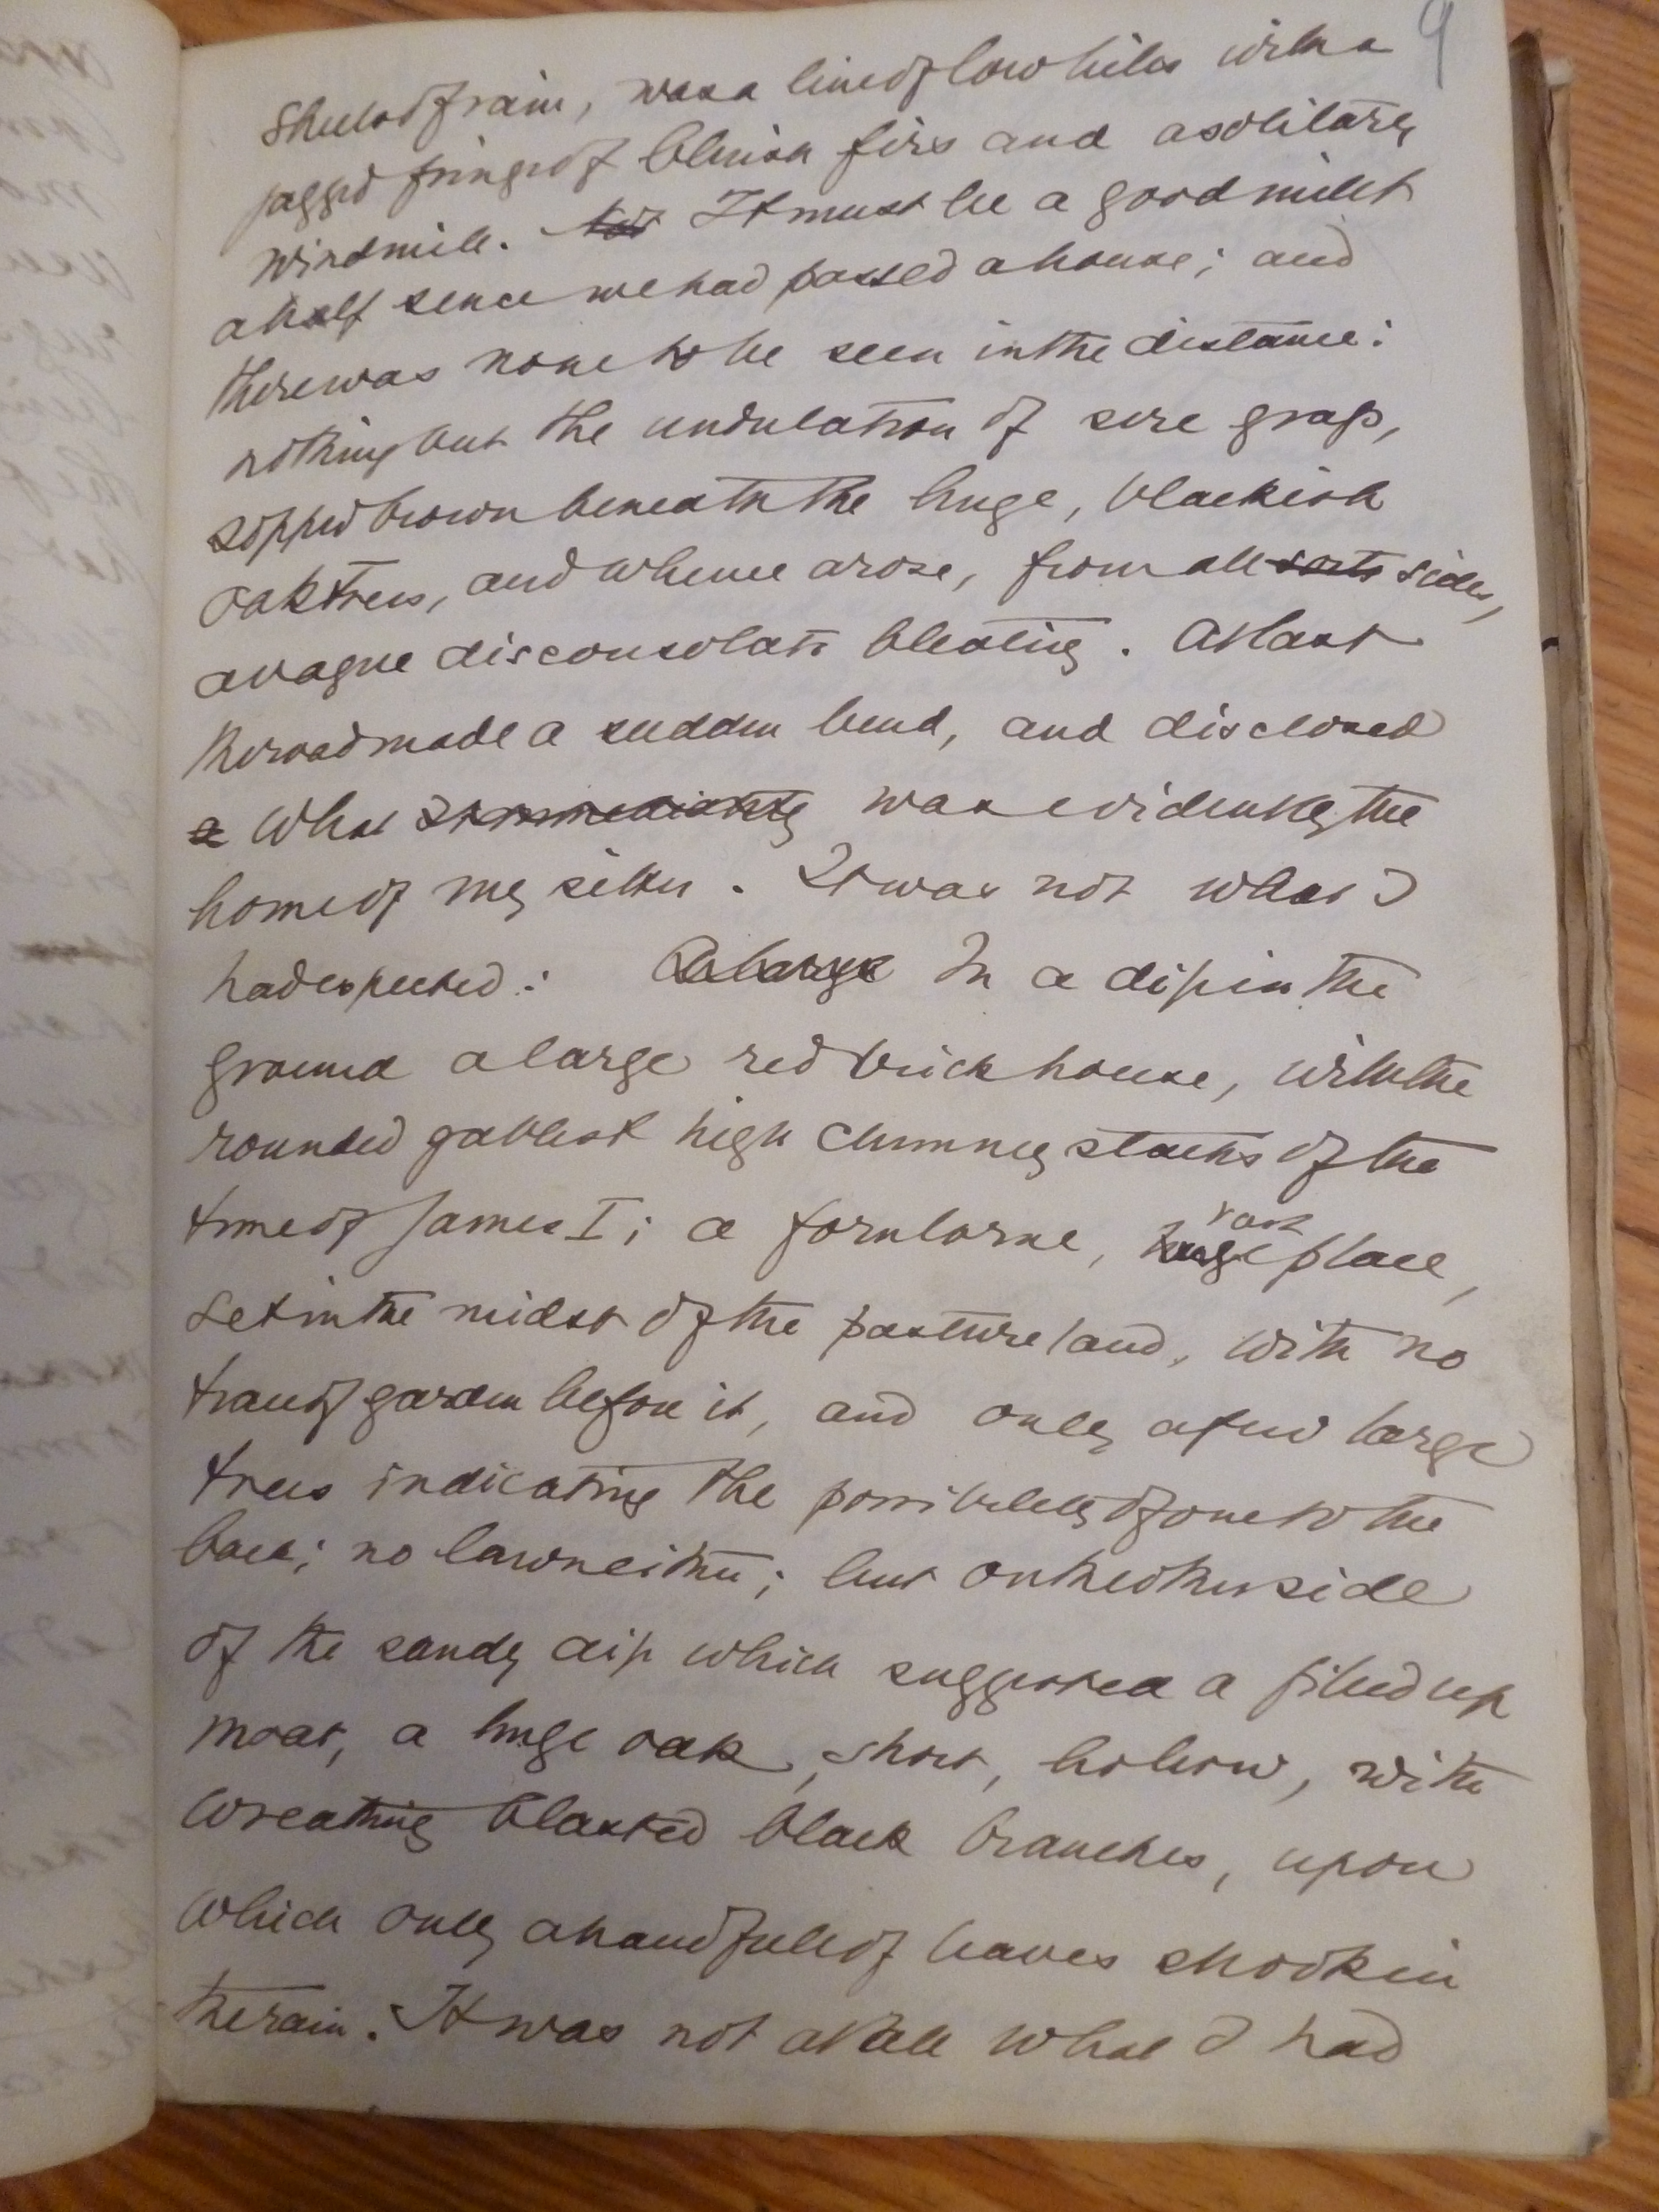 9
sheets of rain, was a line of low hills with a
jagged fringe of bluish firs and a solitary
windmill. It must be a good mile &
a half since we had passed a house; and
there was none to be seen in the distance:
nothing but the undulation of sere grass,
sopped brown beneath the huge, blackish
oaktrees, and whence arose, from all sorts sides,
a vague disconsolate bleating. At last
the road made a sudden bend, and disclosed
a what immediately was evidently the
home of my sitter. It was not what I
had expected: A large In a dip in the
ground a large red brick house, with the
rounded gables & high chimney stacks of the
time of James I; a fornlorne, vast
huge place,
set in the midst of the pasture land, with no
trace of garden before it, and only a few large
trees indicating the possibility of one to the
back; no lawn either; but on the other side
of the sandy dip which suggested a filled up
moat, a huge oak, short, hollow, with
wreathing blasted black branches, upon
which only a handfull of leaves shook in
the rain. It was not at all what I had